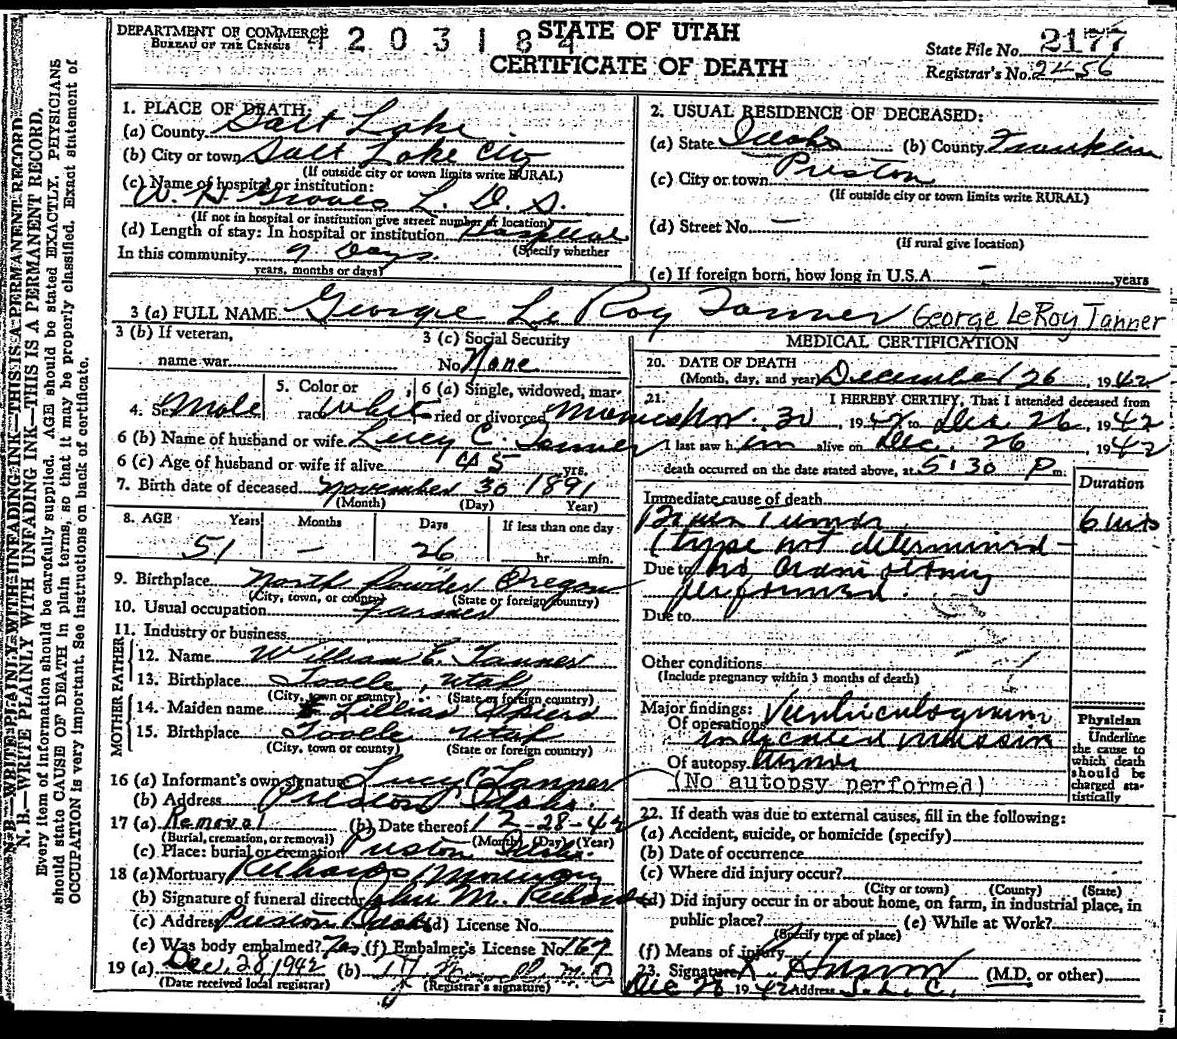 N.B.—WRITE PLAINLY WITH UNFADING INK—THIS IS A PERMANENT RECORD.
N.B.—WRITE PLAINLY WITH UNFADING INK—THIS IS A PERMANENT RECORD.
Every item of information should be carefully supplied. AGE should be stated EXACTLY. PHYSICIANS
should state CAUSE OF DEATH in plain terms, so that it may be properly classified. Exact statement of
OCCUPATION is very important. See instructions on back of certificate.
DEPARTMENT OF COMMERCE
BUREAU OF THE CENSUS
4203184
STATE OF UTAH
CERTIFICATE OF DEATH
State File No. 2177
Registrar's No. 2456
1. PLACE OF DEATH:
(a) County Salt Lake
(b) City or town Salt Lake City
(If outside city or town limits write RURAL)
(c) Name of hospital or institution:
W. H. Groves L. D. S.
(If not in hospital or institution give street number or location)
(d) Length of stay: In hospital or institution Hospital
(Specify whether
In this community 9 Days.
years, months or days)
2. USUAL RESIDENCE OF DECEASED:
(a) State Idaho (b) County Franklin
(c) City or town Preston
(If outside city or town limits write RURAL)
(d) Street No. —
(If rural give location)
(e) If foreign born, how long in U.S.A. - years
3 (a) FULL NAME George Le Roy Tanner George LeRoy Tanner
3 (b) If veteran,
name war
3 (c) Social Security
No. None
4. Sex Male
5. Color or
race White
6 (a) Single, widowed, mar-
ried or divorced
6 (b) Name of husband or wife Lucy C. Tanner
6 (c) Age of husband or wife if alive 45 yrs.
7. Birth date of deceased November 30 1891
(Month) (Day) Year)
8. AGE Years Months Days If less than one day
51 — 26 hr. min.
9. Birthplace North Powder Oregon
(City, town, or county) (State or foreign country)
10. Usual occupation Farmer
11. Industry or business
FATHER
12. Name William E. Tanner
13. Birthplace Tooele, Utah
(City, town or county) (State or foreign country)
MOTHER
14. Maiden name Lillis Spiers
15. Birthplace Tooele Utah
(City, town or county) (State or foreign country)
16 (a) Informant's own signature Lucy C Tanner
(b) Address Preston, Idaho.
17 (a) Removal (b) Date thereof 12-28-42
(Burial, cremation, or removal) (Month) (Day) (Year)
(c) Place: burial or cremation Preston Idaho.
18 (a) Mortuary Richards Mortuary
(b) Signature of funeral director John M. Richards
(c) Address Preston Idaho (d) License No.
(e) Was body embalmed? Yes (f) Embalmer's License No. 169
19 (a) Dec. 28, 1942 (b) M. D
(Date received local registrar) (Registrar's signature)
MEDICAL CERTIFICATION
20. DATE OF DEATH
(Month, day, and year) December 26, 1942
21. I HEREBY CERTIFY, That I attended deceased from
Nov. 30, 1942 to Dec. 26, 1942
I last saw him alive on Dec. 26 1942
death occurred on the date stated above, at 5:30 P m.
Duration
Immediate cause of death
Brain Tumor 6 wks
(type not determined—
Due to no craniotomy
performed.
Due to
Other conditions
(Include pregnancy within 3 months of death)
Major findings: Ventriculogram
Of operations indicated
Of autopsy tumor
(No autopsy performed)
Physician
Underline
the cause to
which death
should be
charged sta-
tistically
22. If death was due to external causes, fill in the following:
(a) Accident, suicide, or homicide (specify)
(b) Date of occurrence
(c) Where did injury occur?
(City or town) (County) (State)
(d) Did injury occur in or about home, on farm, in industrial place, in
public place? (e) While at Work?
(Specify type of place)
(f) Means of injury
23. Signature (M.D. or other)
Dec 28 1942 Address S. L. C.